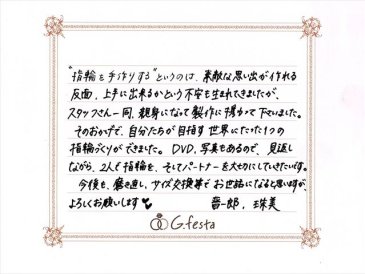 "指輪を手作りする"というのは、素敵な思い出が作れる
反面、上手に出来るかという不安も生まれてきましたが、
スタッフさん一同、親身になって製作に携わって下さいました。
そのおかげで、自分たちが目指す世界にたった1つの
指輪づくりができました。DVD、写真もあるので、見返し
ながら、2人で指輪を、そしてパートナーを大切にしていきたいです。
今後も、磨き直し、サイズ交換等でお世話になると思いますが、
よろしくお願いします
晋一郎、珠美
G.festa